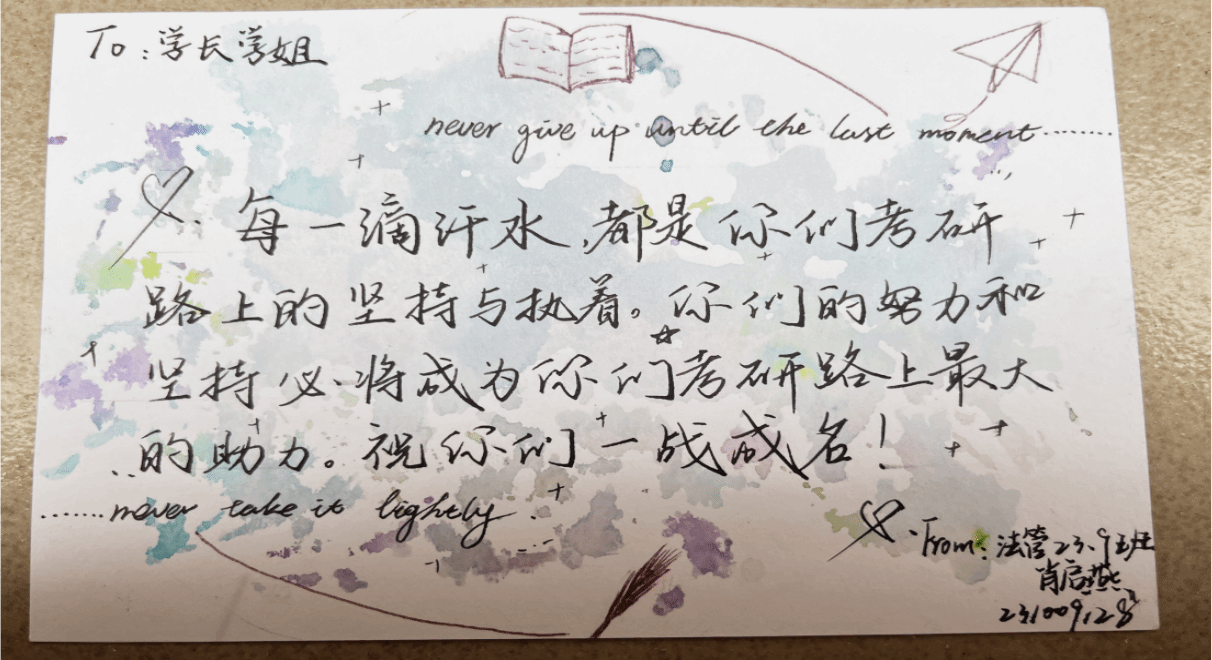 To：学长学姐
never give up until the last moment........
每一滴汗水，都是你们考研
路上的坚持与执着。你们的努力和
坚持必将成为你们考研路上最大
的助力。祝你们一战成名！
.......never take it lightly.
From：法管23.9班
肖启燕
231009128